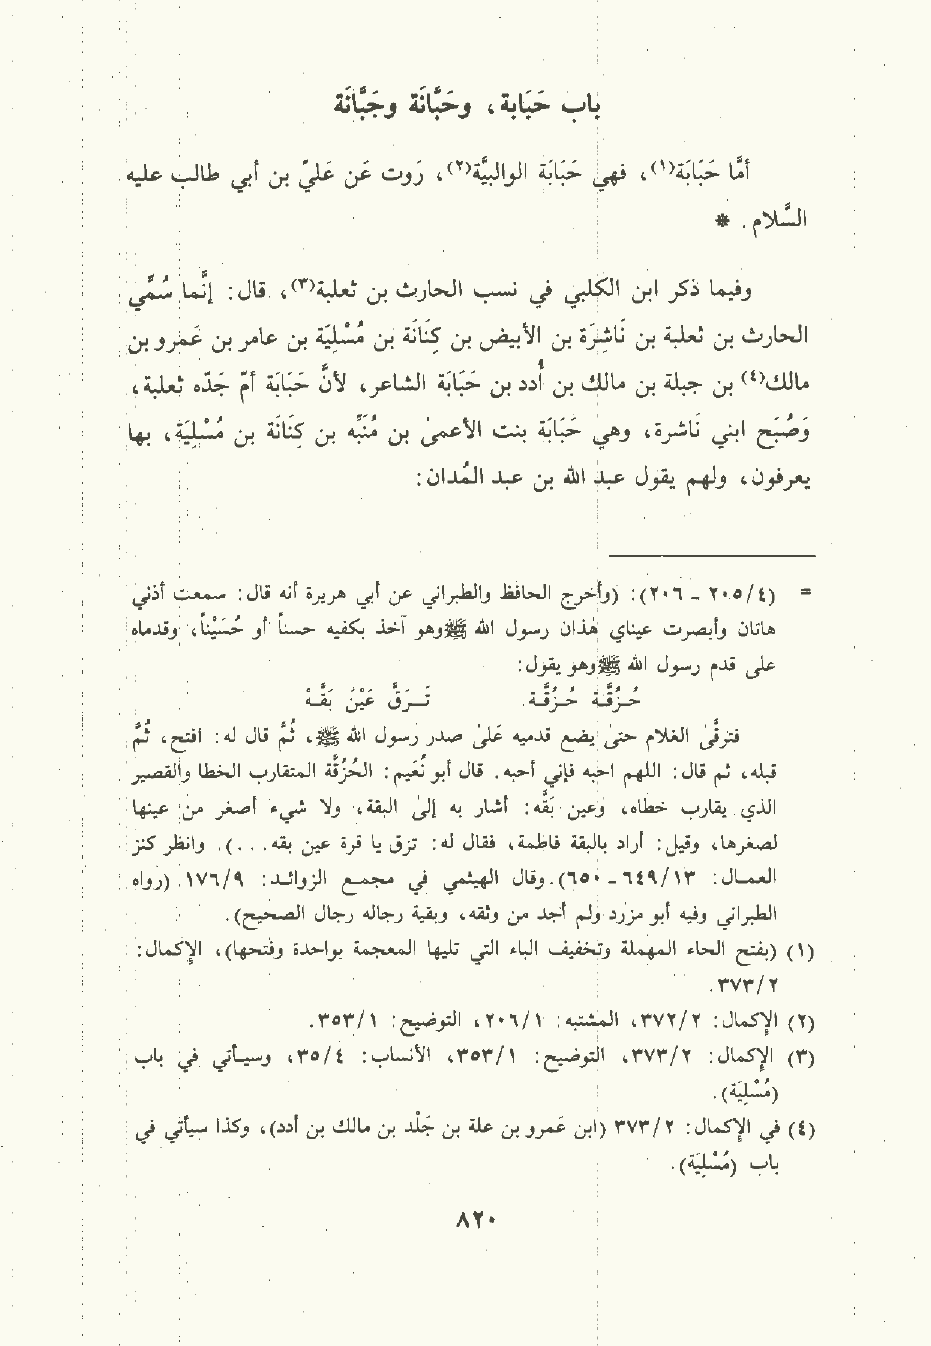 باب حَبَابة، وحَبَّانَة وجَبَّانَة
أمَّا حَبَابَة(١)، فهي حَبَابَة الوالبيَّة(٢)، رَوت عَن عَليّ بن أبي طالب عليه
السَّلام. *
وفيما ذكر ابن الكلبي في نسب الحارث بن ثعلبة(٣)، قال: إنَّما سُمِّي
الحارث بن ثعلبة بن نَاشِرَة بن الأبيض بن كِنَانَة بن مُسْلِيَة بن عامر بن عَمرو بن
مالك(٤) بن جلة بن مالك بن أُدد بن حَبَابَة الشاعر، لأنَّ حَبَابَة أمّ جَدّه ثعلبة،
وَصُبَح ابني نَاشرة، وهي حَبَابَة بنت الأعمىٰ بن مُنَبِّه بن كِنَانَة بن مُسْلِيَة، بها
يعرفون، ولهم يقول عبد الله بن عبد المُدان:
= (٤/ ٢٠٥ - ٢٠٦): (وأخرج الحافظ والطبراني عن أبي هريرة أنه قال: سمعت أذني
هاتان وأبصرت عيناي هذان رسول الله ﷺ وهو آخذ بكفيه حسناً أو حُسَيْناً، وقدماه
على قدم رسول الله ﷺ وهو يقول:
حُـزُقَّـة حُـزُقَّـة. تَــرَقَّ عَيْنَ بَقَّـهْ
فترقّىٰ الغلام حتىٰ يضع قدميه علىٰ صدر رسول الله ﷺ، ثُمَّ قال له: افتح، ثُمَّ
قبله، ثم قال: اللهم احبه فإني أحبه. قال أبو نُعَيم: الحُزُقَّة المتقارب الخطا والقصير
الذي يقارب خطاه، وعين بَقَّه: أشار به إلىٰ البقة، ولا شيء أصغر من عينها
لصغرها، وقيل: أراد بالبقة فاطمة، فقال له: ترق يا قرة عين بقه. . .). وانظر كنز
العمـال: ١٣/ ٦٤٩ - ٦٥٠). وقال الهيثمي في مجمـع الزوائـد: ٩/ ١٧٦. (رواه
الطبراني وفيه أبو مزرد ولم أجد من وثقه، وبقية رجاله رجال الصحيح).
(١) (بفتح الحاء المهملة وتخفيف الباء التي تليها المعجمة بواحدة وفتحها)، الإكمال:
٢/ ٣٧٣.
(٢) الإكمال: ٢/ ٣٧٢، المشتبه: ١/ ٢٠٦، التوضيح: ١/ ٣٥٣.
(٣) الإكمال: ٢/ ٣٧٣، التوضيح: ١/ ٣٥٣، الأنساب: ٤/ ٣٥، وسيـأتي في باب
(مُسْلِيَة).
(٤) في الإكمال: ٢/ ٣٧٣ (ابن عَمرو بن علة بن جَلْد بن مالك بن أدد)، وكذا سيأتي في
باب (مُسْلِيَة).
٨٢٠